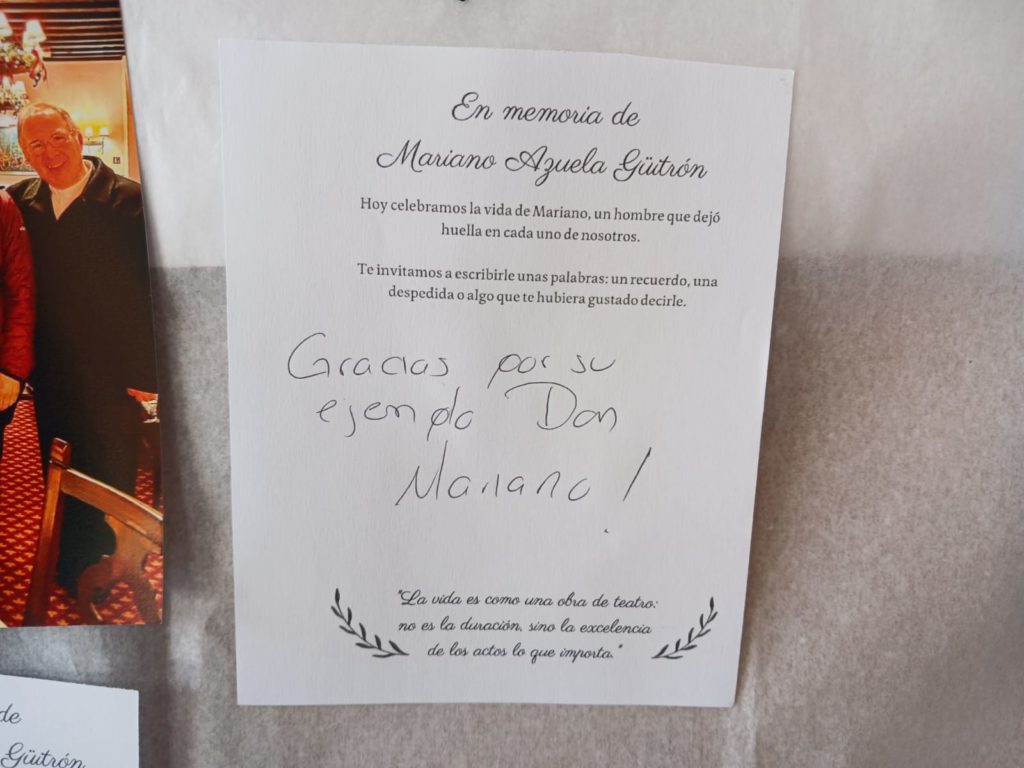 En memoria de
Mariano Azuela Güitrón
Hoy celebramos la vida de Mariano, un hombre que dejó
huella en cada uno de nosotros.
Te invitamos a escribirle unas palabras: un recuerdo, una
despedida o algo que te hubiera gustado decirle.
Gracias por su
ejemplo Don
Mariano!
"La vida es como una obra de teatro:
no es la duración, sino la excelencia
de los actos lo que importa."
de
Güitrón